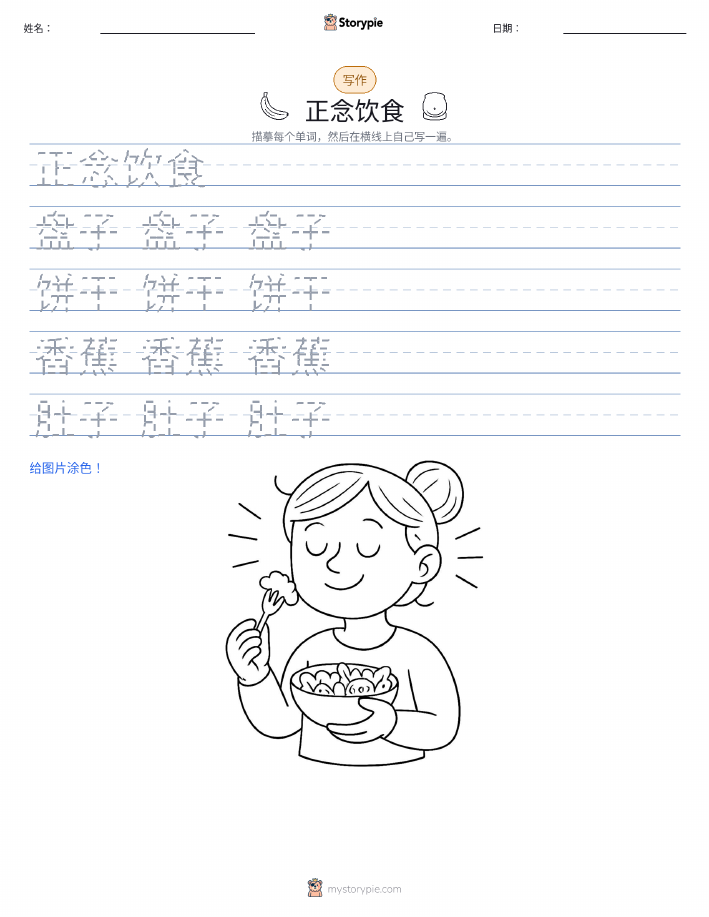 姓名： Storypie 日期：
写作
正念饮食
描摹每个单词，然后在横线上自己写一遍。
正念饮食
盘子 盘子 盘子
饼干 饼干 饼干
香蕉 香蕉 香蕉
肚子 肚子 肚子
给图片涂色！
mystorypie.com